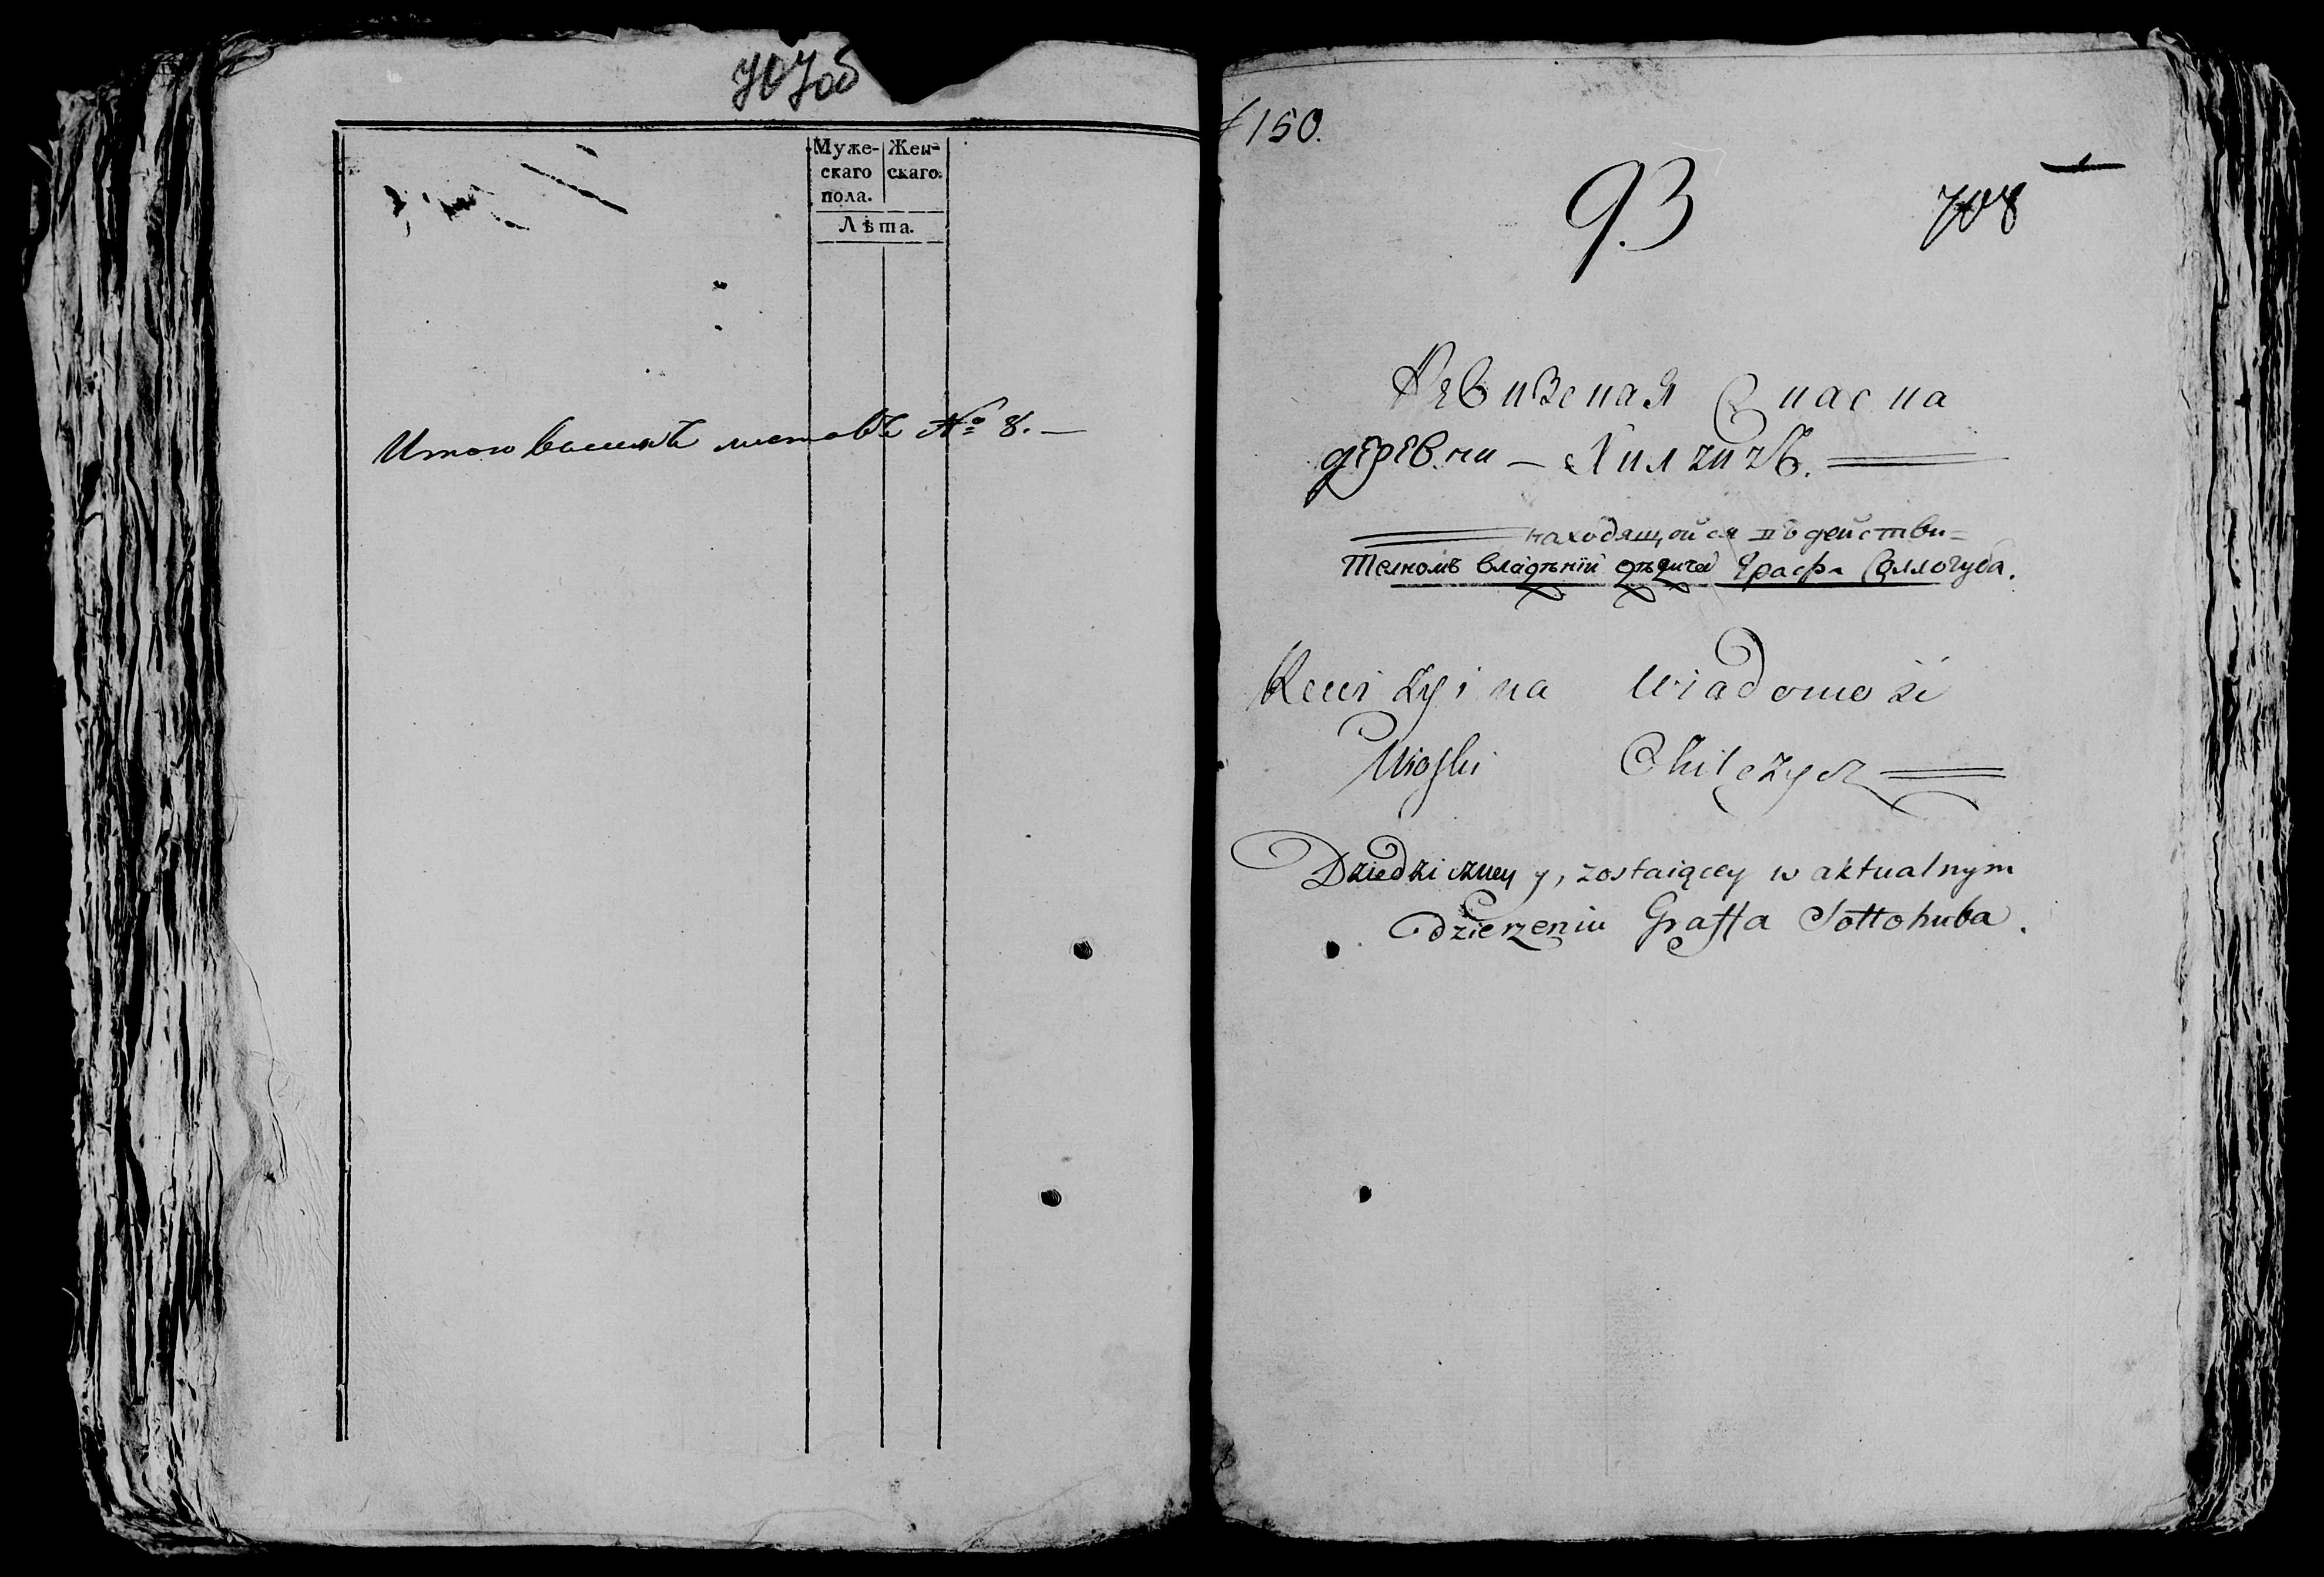 707об
Муже- Жен-
скаго скаго.
пола.
Лѣта.
Итого листовъ № 8. —
150.
93
708
Ревизская Сказка
деревни — Хилчичъ.
находящойся въ действи=
телномъ владѣнїи Графа Соллогуба.
Rewizyina Wiadomość
Wioski Chilczycz
Dziedziczney y, zostaiącey w aktualnym
dzierzeniu Graffa Sołłohuba.